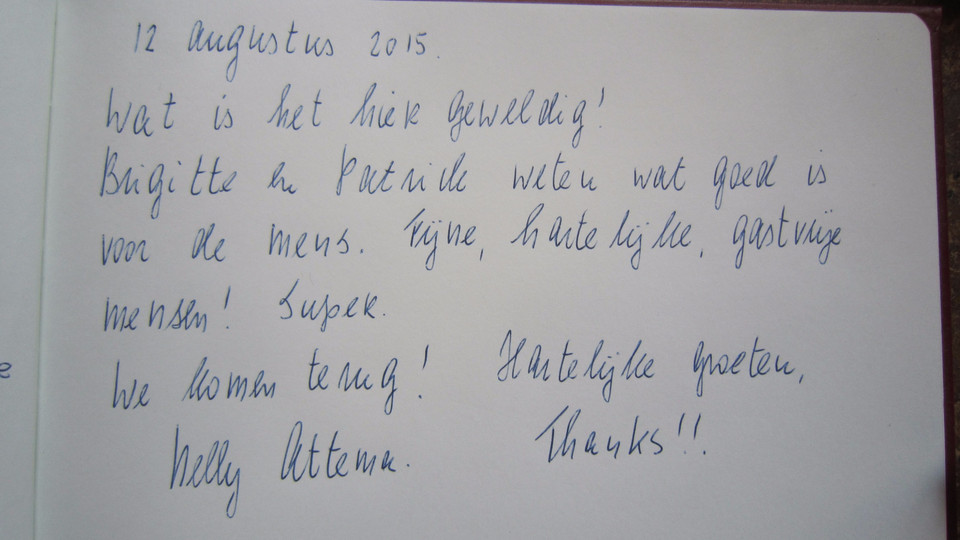 12 augustus 2015.
Wat is het hier geweldig!
Brigitte en Patrick weten wat goed is
voor de mens. Fijne, hartelijke, gastvrije
mensen! Super.
We komen terug! Hartelijke groeten,
Nelly Attema. Thanks!!